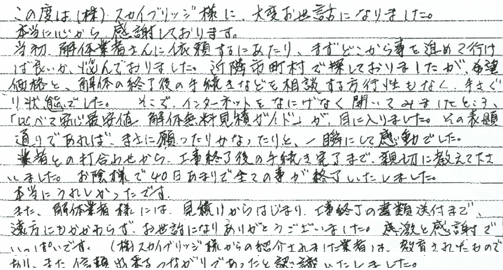 この度は(株)スカイブリッジ様に、大変お世話になりました。
本当に心から感謝しております。
当初、解体業者さんに依頼するにあたり、まずどこから事を進めて行け
ば良いか、悩んでおりました。近隣市町村で探しておりましたが、希望
価格と、解体の終了後の手続きなどを相談する方向性もなく、手さぐ
り状態でした。そこで、インターネットをなにげなく開いてみましたところ、
「比べて安心最安値。解体無料見積ガイド」が、目に入りました。その表題
通りであれば、まさに願ったりかなったりと、一瞬にして感動でした。
業者との打合わせから、工事終了後の手続き完了まで、親切に教えて下さ
いました。お陰様で40日あまりで全ての事が終了いたしました。
本当にうれしかったです。
また、解体業者様には、見積りからはじまり、工事終了の書類送付まで、
遠方にもかかわらずお世話になりありがとうございました。感激と感謝で
いっぱいです。(株)スカイブリッジ様からの紹介されました業者は、教育されたもので
あり、また信頼出来るつながりであったと認識いたしました。